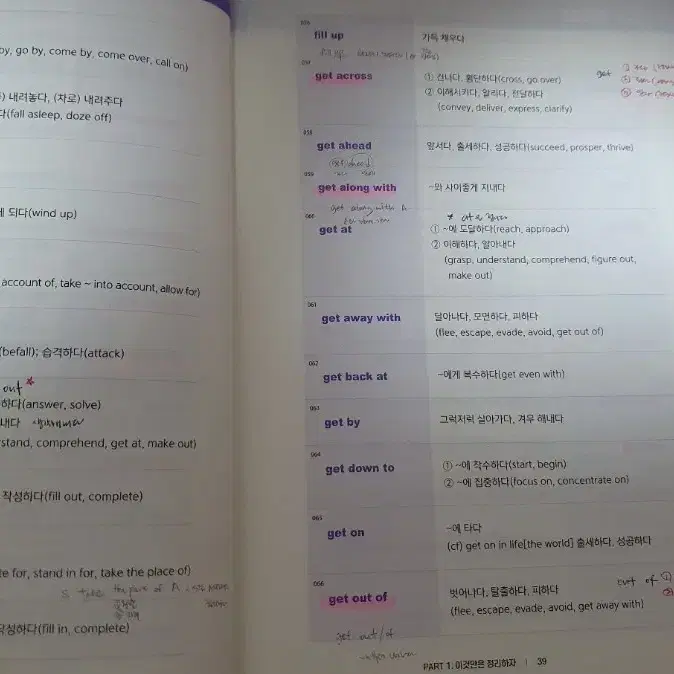 by, go by, come by, come over, call on)
내려놓다, (차로) 내려주다
(fall asleep, doze off)
되다(wind up)
account of, take ~ into account, allow for)
(befall); 습격하다(attack)
out
하다(answer, solve)
stand, comprehend, get at, make out)
작성하다(fill out, complete)
te for, stand in for, take the place of)
작성하다(fill in, complete)
056
fill up
가득 채우다
057
get across
① 건너다, 횡단하다(cross, go over)
② 이해시키다, 알리다, 전달하다
(convey, deliver, express, clarify)
get
058
get ahead
앞서다, 출세하다, 성공하다(succeed, prosper, thrive)
get ahead
059
get along with
~와 사이좋게 지내다
get along with A
060
get at
① ~에 도달하다(reach, approach)
② 이해하다, 알아내다
(grasp, understand, comprehend, figure out,
make out)
061
get away with
달아나다, 모면하다, 피하다
(flee, escape, evade, avoid, get out of)
062
get back at
~에게 복수하다(get even with)
063
get by
그럭저럭 살아가다, 겨우 해내다
064
get down to
① ~에 착수하다(start, begin)
② ~에 집중하다(focus on, concentrate on)
065
get on
~에 타다
(cf) get on in life[the world] 출세하다, 성공하다
066
get out of
벗어나다, 탈출하다, 피하다
(flee, escape, evade, avoid, get away with)
out of ①
②
get out/of
PART 1. 이것만은 정리하자 | 39